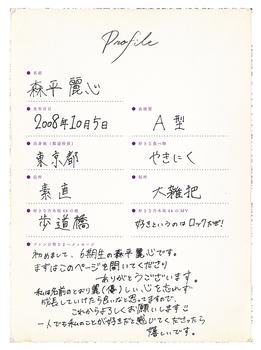 Profile
名前
森平麗心
生年月日
2008年10月5日
血液型
A型
出身地(都道府県)
東京都
好きな食べ物
やきにく
長所
素直
短所
大雑把
好きな乃木坂46の曲
歩道橋
好きな乃木坂46のMV
好きというのはロックだぜ!
ファンの皆さまへメッセージ
初めまして、6期生の森平麗心です。
まずはこのページを開いてくださり
ありがとうございます。
私は名前のとおり麗(優)しい心を忘れず
成長していけたら良いなと思ってますので、
これからよろしくお願いします☺
一人でも私のことが好きだと感じてくださったら
嬉しいです。